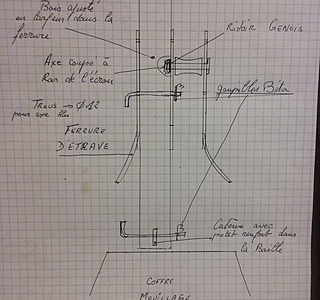 Bois ajusté
en largeur dans la
ferrure
Ridoir Genois
Axe coupe à
Ras de l'écrou
Trous → Ø12
pour axe Alu
goupilles Béta
FERRURE
D'ETRAVE
avec
petit renfort dans
la Baille
COFFRE
MOUILLAGE